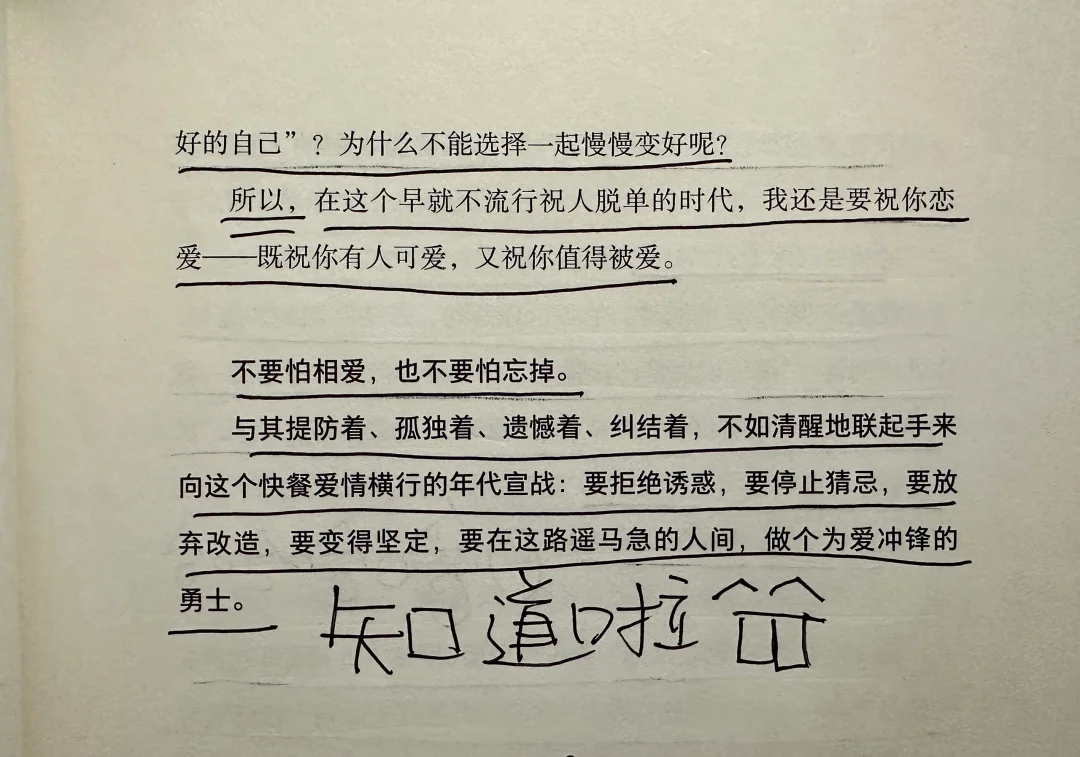 好的自己”?为什么不能选择一起慢慢变好呢?
所以,在这个早就不流行祝人脱单的时代,我还是要祝你恋
爱——既祝你有人可爱,又祝你值得被爱。
不要怕相爱,也不要怕忘掉。
与其提防着、孤独着、遗憾着、纠结着,不如清醒地联起手来
向这个快餐爱情横行的年代宣战:要拒绝诱惑,要停止猜忌,要放
弃改造,要变得坚定,要在这路遥马急的人间,做个为爱冲锋的
勇士。
知道啦